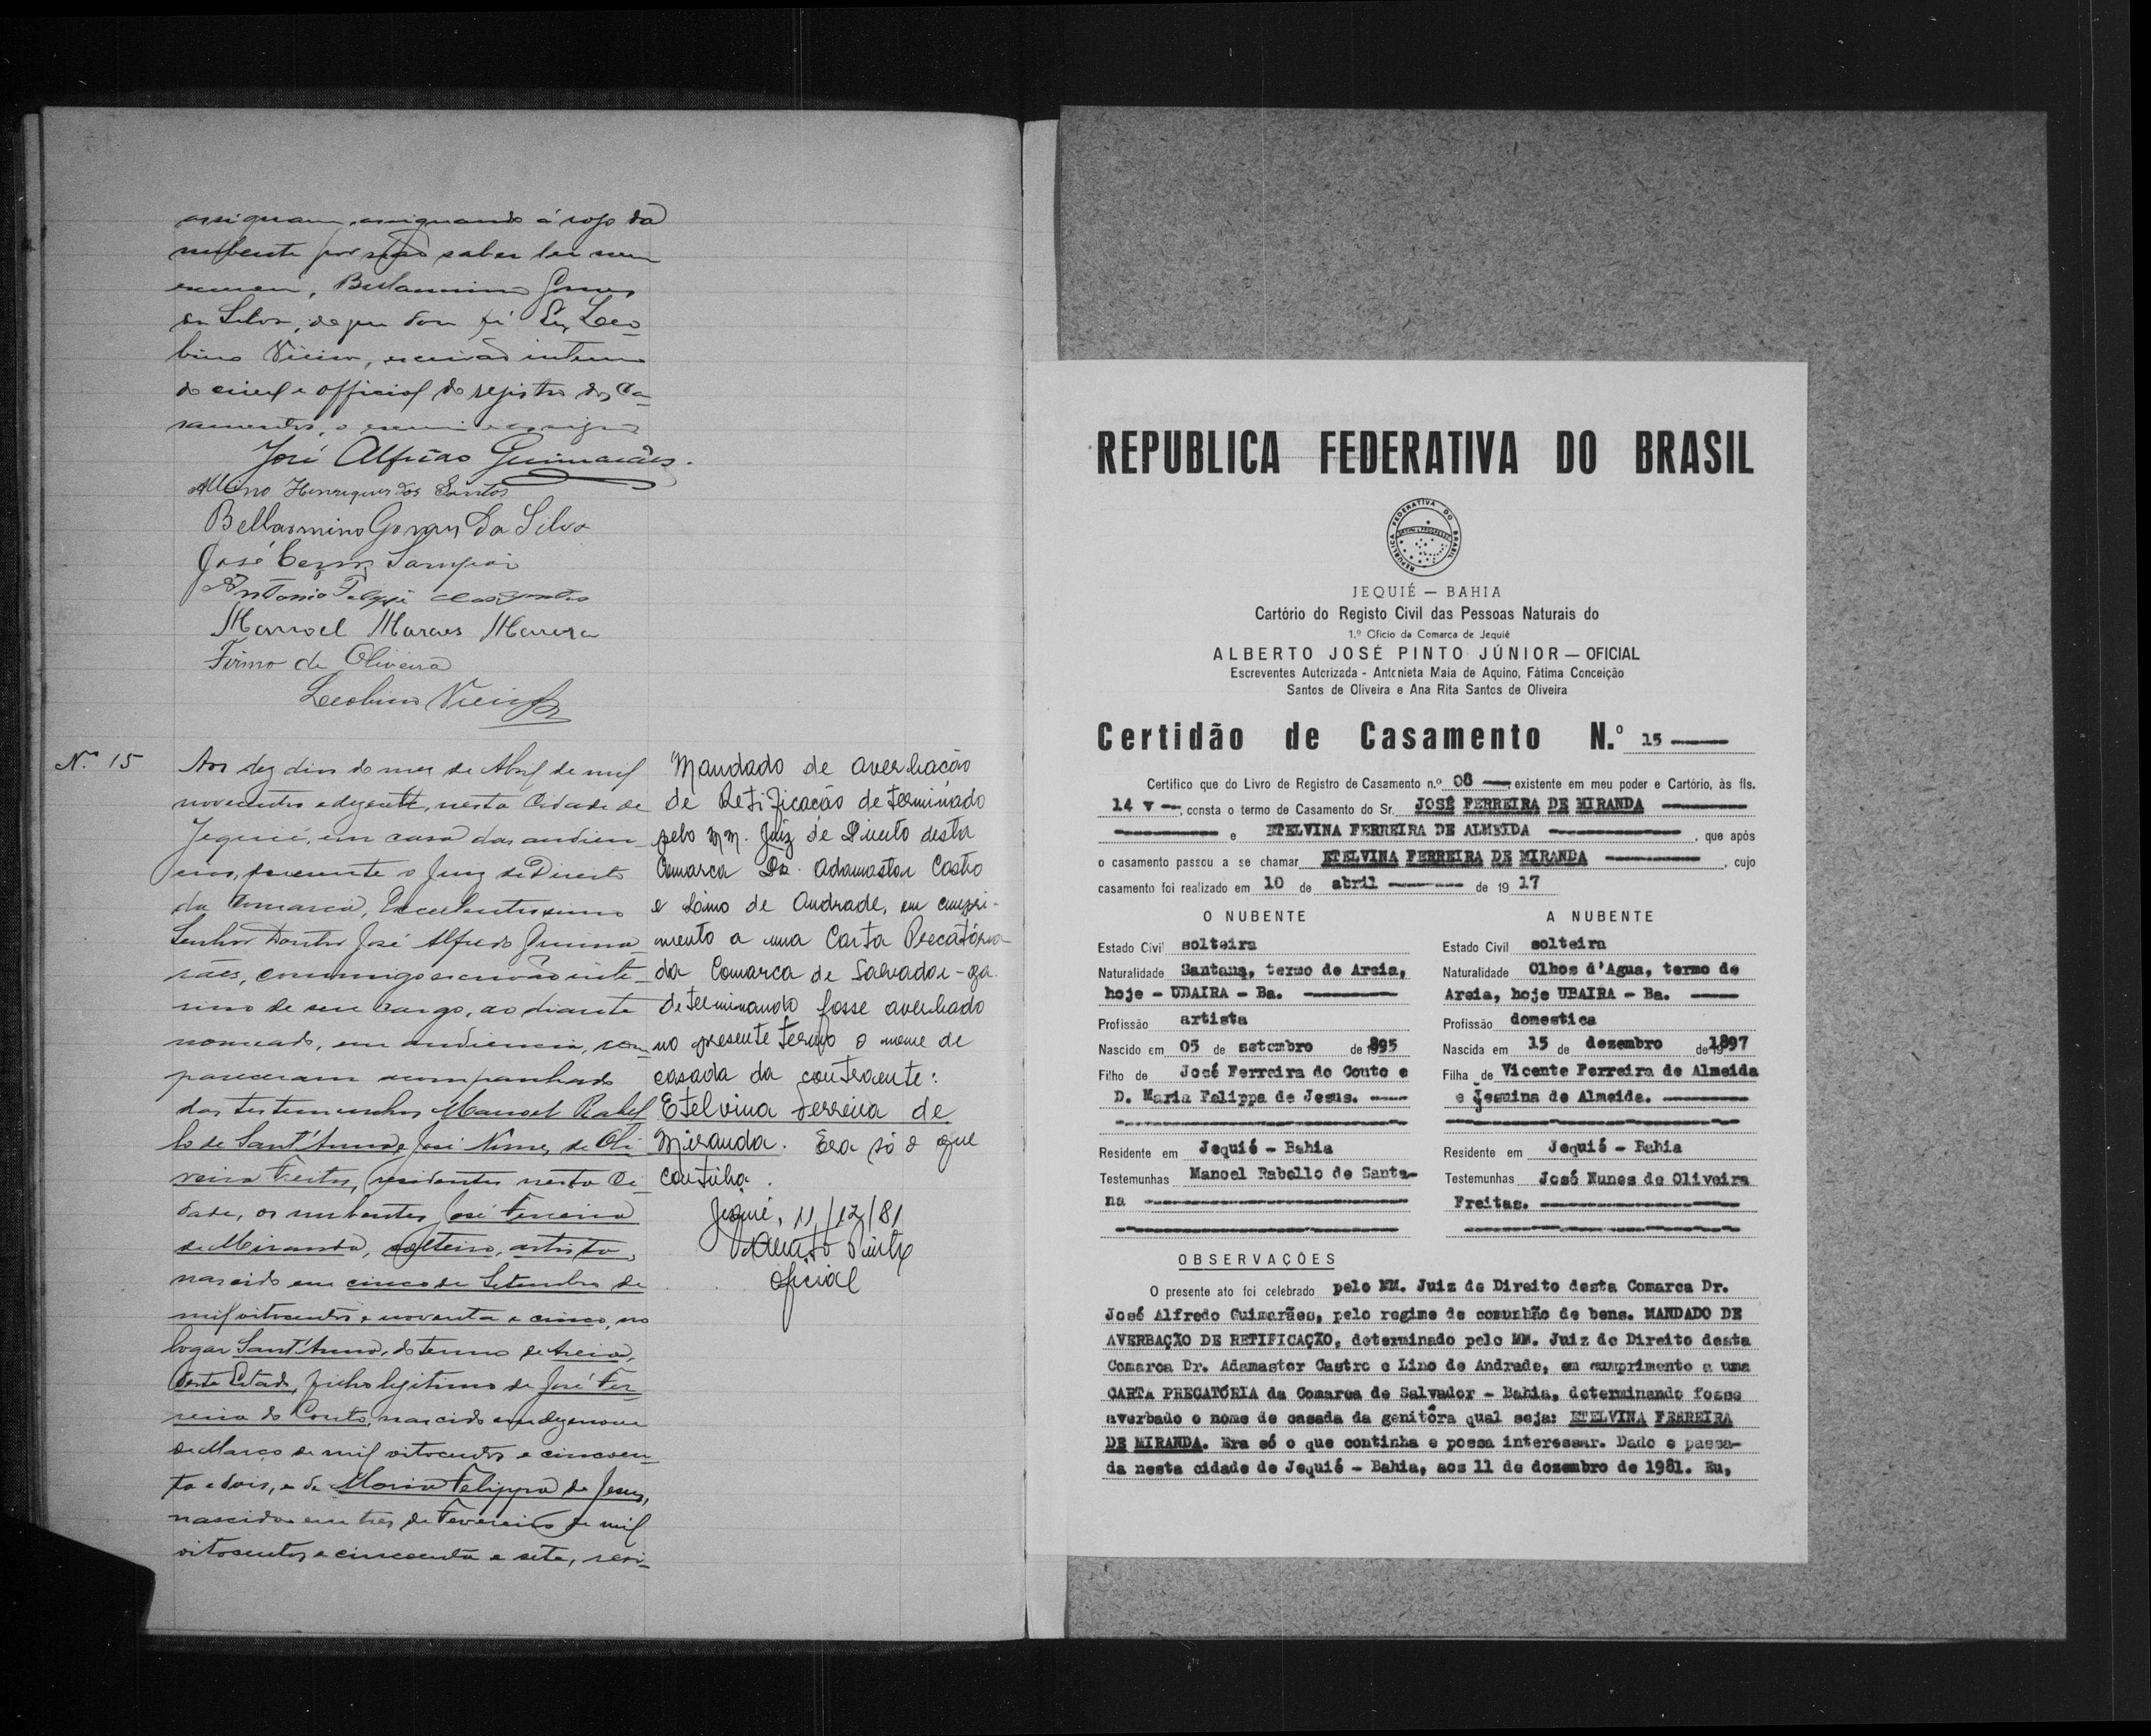 assignam, assignando á rogo da
nubente por não saber ler nem
escrever, Bellarmino Gomes
da Silva, de que dou fé. Eu, Leo-
bino Vieira, escrivão interino
do civel e official do registro dos ca-
samentos, o escrevi e assigno
José Alfredo Guimarães.
Albino Henriques dos Santos
Bellarmino Gomes da Silva
José Cezar Sampaio
Antonio Felippe dos Santos
Manoel Maraes
Firmo de Oliveira
Leobino Vieira
Nº 15
Aos dez dias do mez de Abril de mil
novecentos e dezesete, nesta Cidade de
Jequié, em casa das audien-
cias, presente o Juiz de Direito
da Comarca, Excellentissimo
Senhor Doutor José Alfredo Guima-
rães, commigo escrivão inte-
rino de seu cargo, ao diante
nomeado, em audiencia, com-
pareceram acompanhados
das testemunhas Manoel Rabel-
lo de Sant'Anna e José Nunes de Oli-
veira Freitas, residentes nesta Ci-
dade, os nubentes José Ferreira
de Miranda, solteiro, artista,
nascido em cinco de Setembro de
mil oitocentos e noventa e cinco, no
logar Sant'Anna, do termo de Areia,
deste Estado, filho legitimo de José Fer-
reira do Couto, nascido em dezenove
de Março de mil oitocentos e cincoen-
ta e dois, e de Maria Felippa de Jesus,
nascida em tres de Fevereiro de mil
oitocentos e cincoenta e sete, resi-
Mandado de averbação
de Retificação determinado
pelo MM. Juiz de Direito desta
Comarca Dr. Adamastor Castro
e Lino de Andrade, em cumpri-
mento a uma Carta Precatória
da Comarca de Salvador - Ba.
determinando fosse averbado
no presente termo o nome de
casada da contraente:
Etelvina Ferreira de
Miranda. Era só o que
continha.
Jequié, 11/12/81
Pinto
oficial
REPUBLICA FEDERATIVA DO BRASIL
REPUBLICA FEDERATIVA DO BRASIL
ORDEM E PROGRESSO
JEQUIÉ — BAHIA
Cartório do Registo Civil das Pessoas Naturais do
1.º Ofício da Comarca de Jequié
ALBERTO JOSÉ PINTO JÚNIOR — OFICIAL
Escreventes Autorizada - Antonieta Maia de Aquino, Fátima Conceição
Santos de Oliveira e Ana Rita Santos de Oliveira
Certidão de Casamento N.º 15
Certifico que do Livro de Registro de Casamento n.º 08 existente em meu poder e Cartório, às fls.
14 v -, consta o termo de Casamento do Sr. JOSÉ FERREIRA DE MIRANDA
e ETELVINA FERREIRA DE ALMEIDA , que após
o casamento passou a se chamar ETELVINA FERREIRA DE MIRANDA , cujo
casamento foi realizado em 10 de abril de 19 17
O NUBENTE
Estado Civil solteiro
Naturalidade Santana, termo de Areia,
hoje - UBAIRA - Ba.
Profissão artista
Nascido em 05 de setembro de 1895
Filho de José Ferreira do Couto e
D. Maria Felippa de Jesus.
Residente em Jequié - Bahia
Testemunhas Manoel Rabello de Santa-
na
A NUBENTE
Estado Civil solteira
Naturalidade Olhos d'Agua, termo de
Areia, hoje UBAIRA - Ba.
Profissão domestica
Nascida em 15 de dezembro de 1897
Filha de Vicente Ferreira de Almeida
e Jesuina de Almeida.
Residente em Jequié - Bahia
Testemunhas José Nunes de Oliveira
Freitas.
OBSERVAÇÕES
O presente ato foi celebrado pelo MM. Juiz de Direito desta Comarca Dr.
José Alfredo Guimarães, pelo regime de comunhão de bens. MANDADO DE
AVERBAÇÃO DE RETIFICAÇÃO, determinado pelo MM. Juiz de Direito desta
Comarca Dr. Adamastor Castro e Lino de Andrade, em cumprimento a uma
CARTA PRECATÓRIA da Comarca de Salvador - Bahia, determinando fosse
averbado o nome de casada da genitôra qual seja: ETELVINA FERREIRA
DE MIRANDA. Era só o que continha e possa interessar. Dado e passa-
da nesta cidade de Jequié - Bahia, aos 11 de dezembro de 1981. Eu,